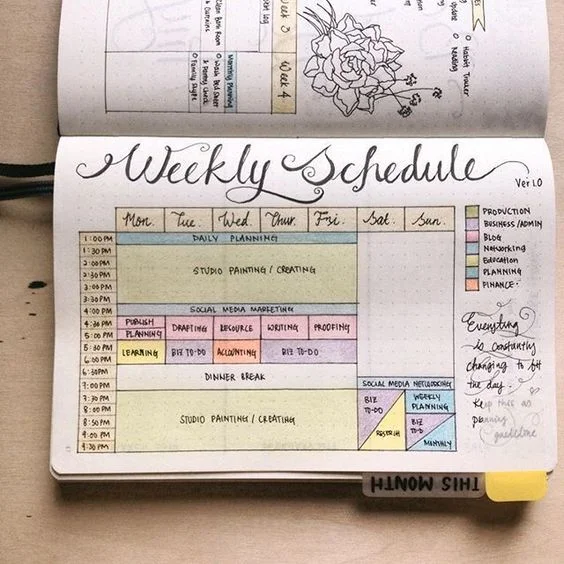 Week 3
Week 4
Clean Bath Room
& Curtains
Wash Bed Sheet
& Pantry Check
Family Skype
Monthly Planning
Update
Habit Tracker
Reading
Weekly Schedule
Ver 1.0
Mon. Tue. Wed. Thur. Fri. Sat. Sun.
1:00 PM
1:30 PM
2:00 PM
2:30 PM
3:00 PM
3:30 PM
4:00 PM
4:30 PM
5:00 PM
5:30 PM
6:00 PM
6:30 PM
7:00 PM
7:30 PM
8:00 PM
8:30 PM
9:00 PM
9:30 PM
DAILY PLANNING
STUDIO PAINTING / CREATING
SOCIAL MEDIA MARKETING
PUBLISH
PLANNING
DRAFTING
RESOURCE
WRITING
PROOFING
LEARNING
BIZ TO-DO
ACCOUNTING
BIZ TO-DO
DINNER BREAK
STUDIO PAINTING / CREATING
SOCIAL MEDIA NETWORKING
BIZ
TO-DO
RESEARCH
WEEKLY
PLANNING
BIZ
TO-D
MONTHLY
PRODUCTION
BUSINESS/ADMIN
BLOG
Networking
Education
PLANNING
FINANCE
Everything
is constantly
changing to fit
the day.
Keep this as
planning
guideline
THIS MONTH